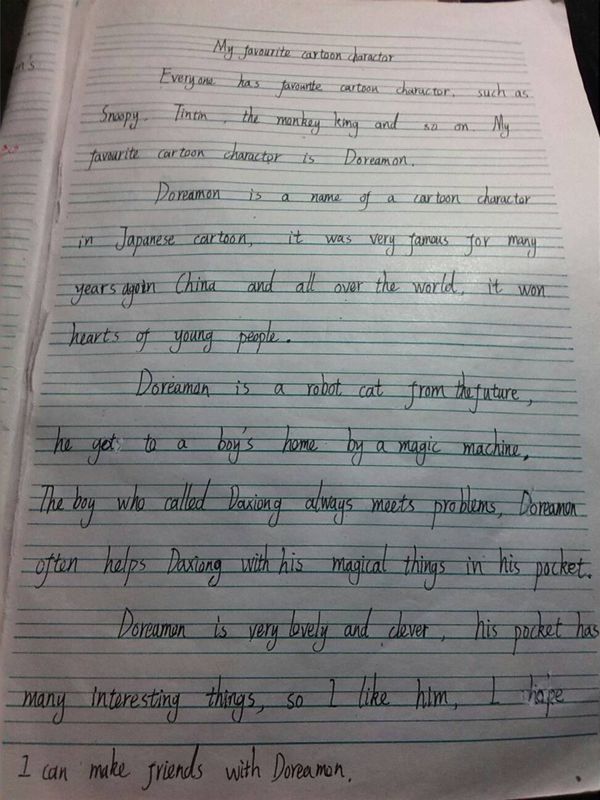 My favourite cartoon charactor
Everyone has favourite cartoon charactor, such as
Snoopy. Tintin, the monkey king and so on. My
favourite cartoon charactor is Doreamon.
Doreamon is a name of a cartoon charactor
in Japanese cartoon, it was very famous for many
years ago in China and all over the world, it won
hearts of young people.
Doreamon is a robot cat from the future,
he gets to a boy's home by a magic machine,
The boy who called Daxiong always meets problems, Doreamon
often helps Daxiong with his magical things in his pocket.
Doreamon is very lovely and clever, his pocket has
many interesting things, so I like him, I hope
I can make friends with Doreamon.